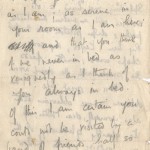 as I am as serene in
your room as I am here
and that you think
of me never in bed as
as I think of
you always in bed
of this I am certain you
could not be visited by a
of friends that so